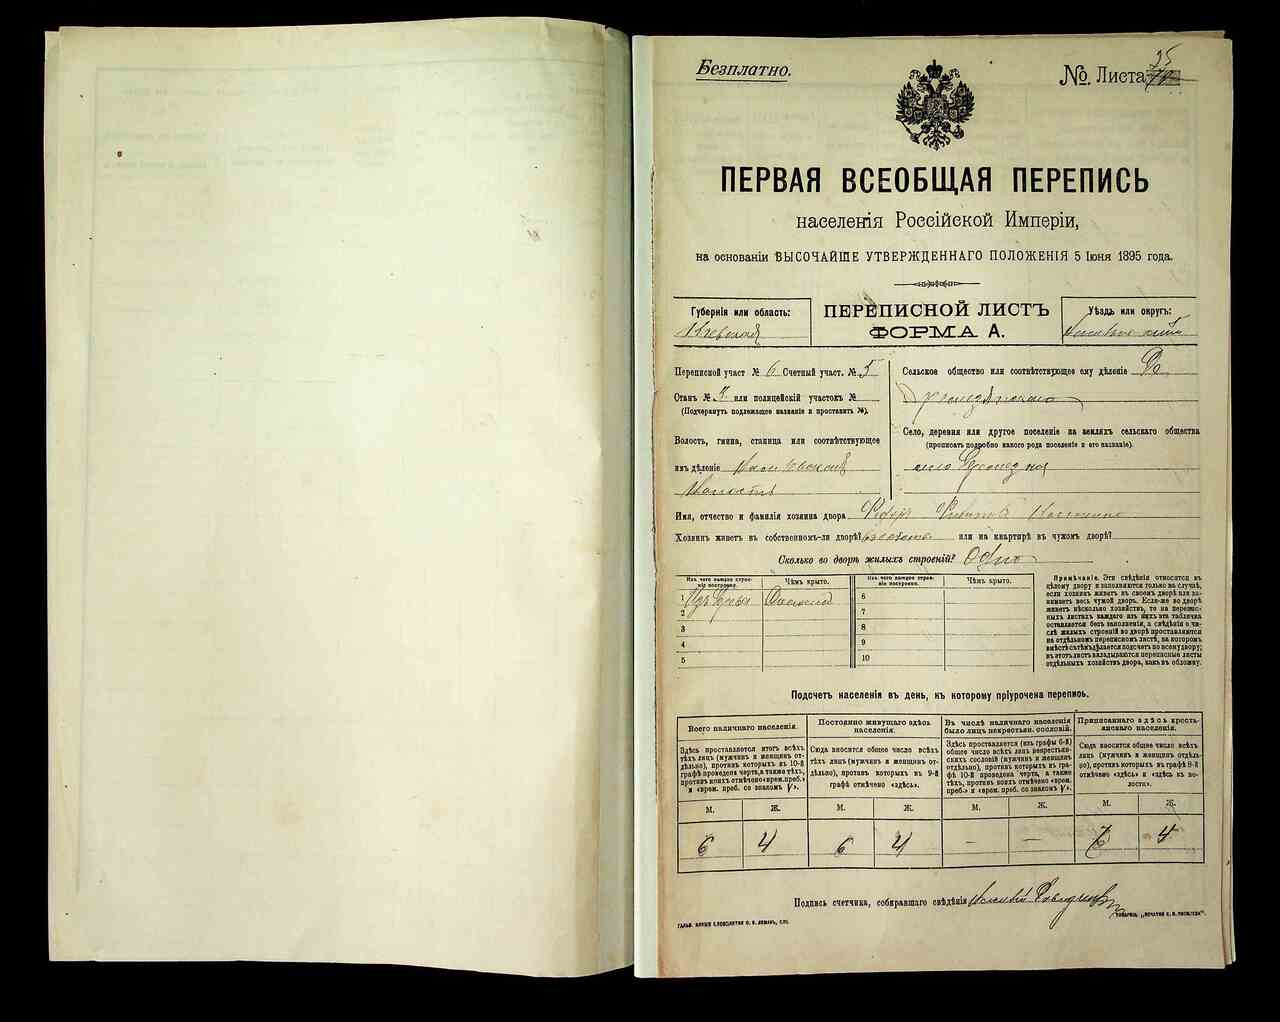 Безплатно.
№ Листа 25
ПЕРВАЯ ВСЕОБЩАЯ ПЕРЕПИСЬ
населенія Россійской Имперіи,
на основаніи ВЫСОЧАЙШЕ УТВЕРЖДЕННАГО ПОЛОЖЕНІЯ 5 Іюня 1895 года.
Губернія или область:
ПЕРЕПИСНОЙ ЛИСТЪ
ФОРМА А.
Уѣздъ или округъ:
Переписной участ № 6 Счетный участ. № 5
Станъ № или полицейскій участокъ №
(Подчеркнуть подлежащее названіе и проставить №).
Волость, гмина, станица или соотвѣтствующее
имъ дѣленіе
Волость
Сельское общество или соотвѣтствующее ему дѣленіе
Село, деревня или другое поселеніе на земляхъ сельскаго общества
(прописать подробно какого рода поселеніе и его названіе).
село
Имя, отчество и фамилія хозяина двора
Хозяинъ живетъ въ собственномъ-ли дворѣ? или на квартирѣ въ чужомъ дворѣ?
Сколько во дворѣ жилыхъ строеній? Одно
Изъ чего каждое строеніе построено.
Чѣмъ крыто.
Изъ чего каждое строеніе построено.
Чѣмъ крыто.
1
2
3
4
5
6
7
8
9
10
Примѣчаніе. Эти свѣдѣнія относятся къ
цѣлому двору и заполняются только въ случаѣ,
если хозяинъ живетъ въ своемъ дворѣ или занимаетъ
весь чужой дворъ. Если-же во дворѣ
живетъ нѣсколько хозяйствъ, то на переписныхъ
листахъ каждаго изъ нихъ эта табличка
оставляется безъ заполненія, а свѣдѣнія о числѣ
жилыхъ строеній во дворѣ проставляются
на отдѣльномъ переписномъ листѣ, на которомъ
вмѣстѣ съ тѣмъ дѣлается подсчетъ по всему двору;
въ этотъ листъ вкладываются переписные листы
отдѣльныхъ хозяйствъ двора, какъ въ обложку.
Подсчетъ населенія въ день, къ которому пріурочена перепись.
Всего наличнаго населенія.
Здѣсь проставляется итогъ всѣхъ
тѣхъ лицъ (мужчинъ и женщинъ отдѣльно),
противъ которыхъ въ 10-й
графѣ проведена черта, а также тѣхъ,
противъ коихъ отмѣчено «врем. преб.»
и «врем. преб. со знакомъ V».
Постоянно живущаго здѣсь
населенія.
Сюда вносится общее число всѣхъ
тѣхъ лицъ (мужчинъ и женщинъ отдѣльно),
противъ которыхъ въ 9-й
графѣ отмѣчено «здѣсь».
Въ числѣ наличнаго населенія
было лицъ некрестьян. сословій.
Здѣсь проставляется (изъ графы 6-й)
общее число всѣхъ лицъ некрестьянскихъ
сословій (мужчинъ и женщинъ
отдѣльно), противъ которыхъ въ графѣ
10-й проведена черта, а также
тѣхъ, противъ коихъ отмѣчено «врем.
преб.» и «врем. преб. со знакомъ V».
Приписаннаго здѣсь крестьянскаго
населенія.
Сюда вносится общее число всѣхъ
лицъ (мужчинъ и женщинъ отдѣльно),
противъ которыхъ въ графѣ 8-й
отмѣчено «здѣсь» и «здѣсь къ волости».
М. Ж. М. Ж. М. Ж. М. Ж.
6 4 6 4 – – 6 4
Подпись счетчика, собиравшаго свѣдѣнія